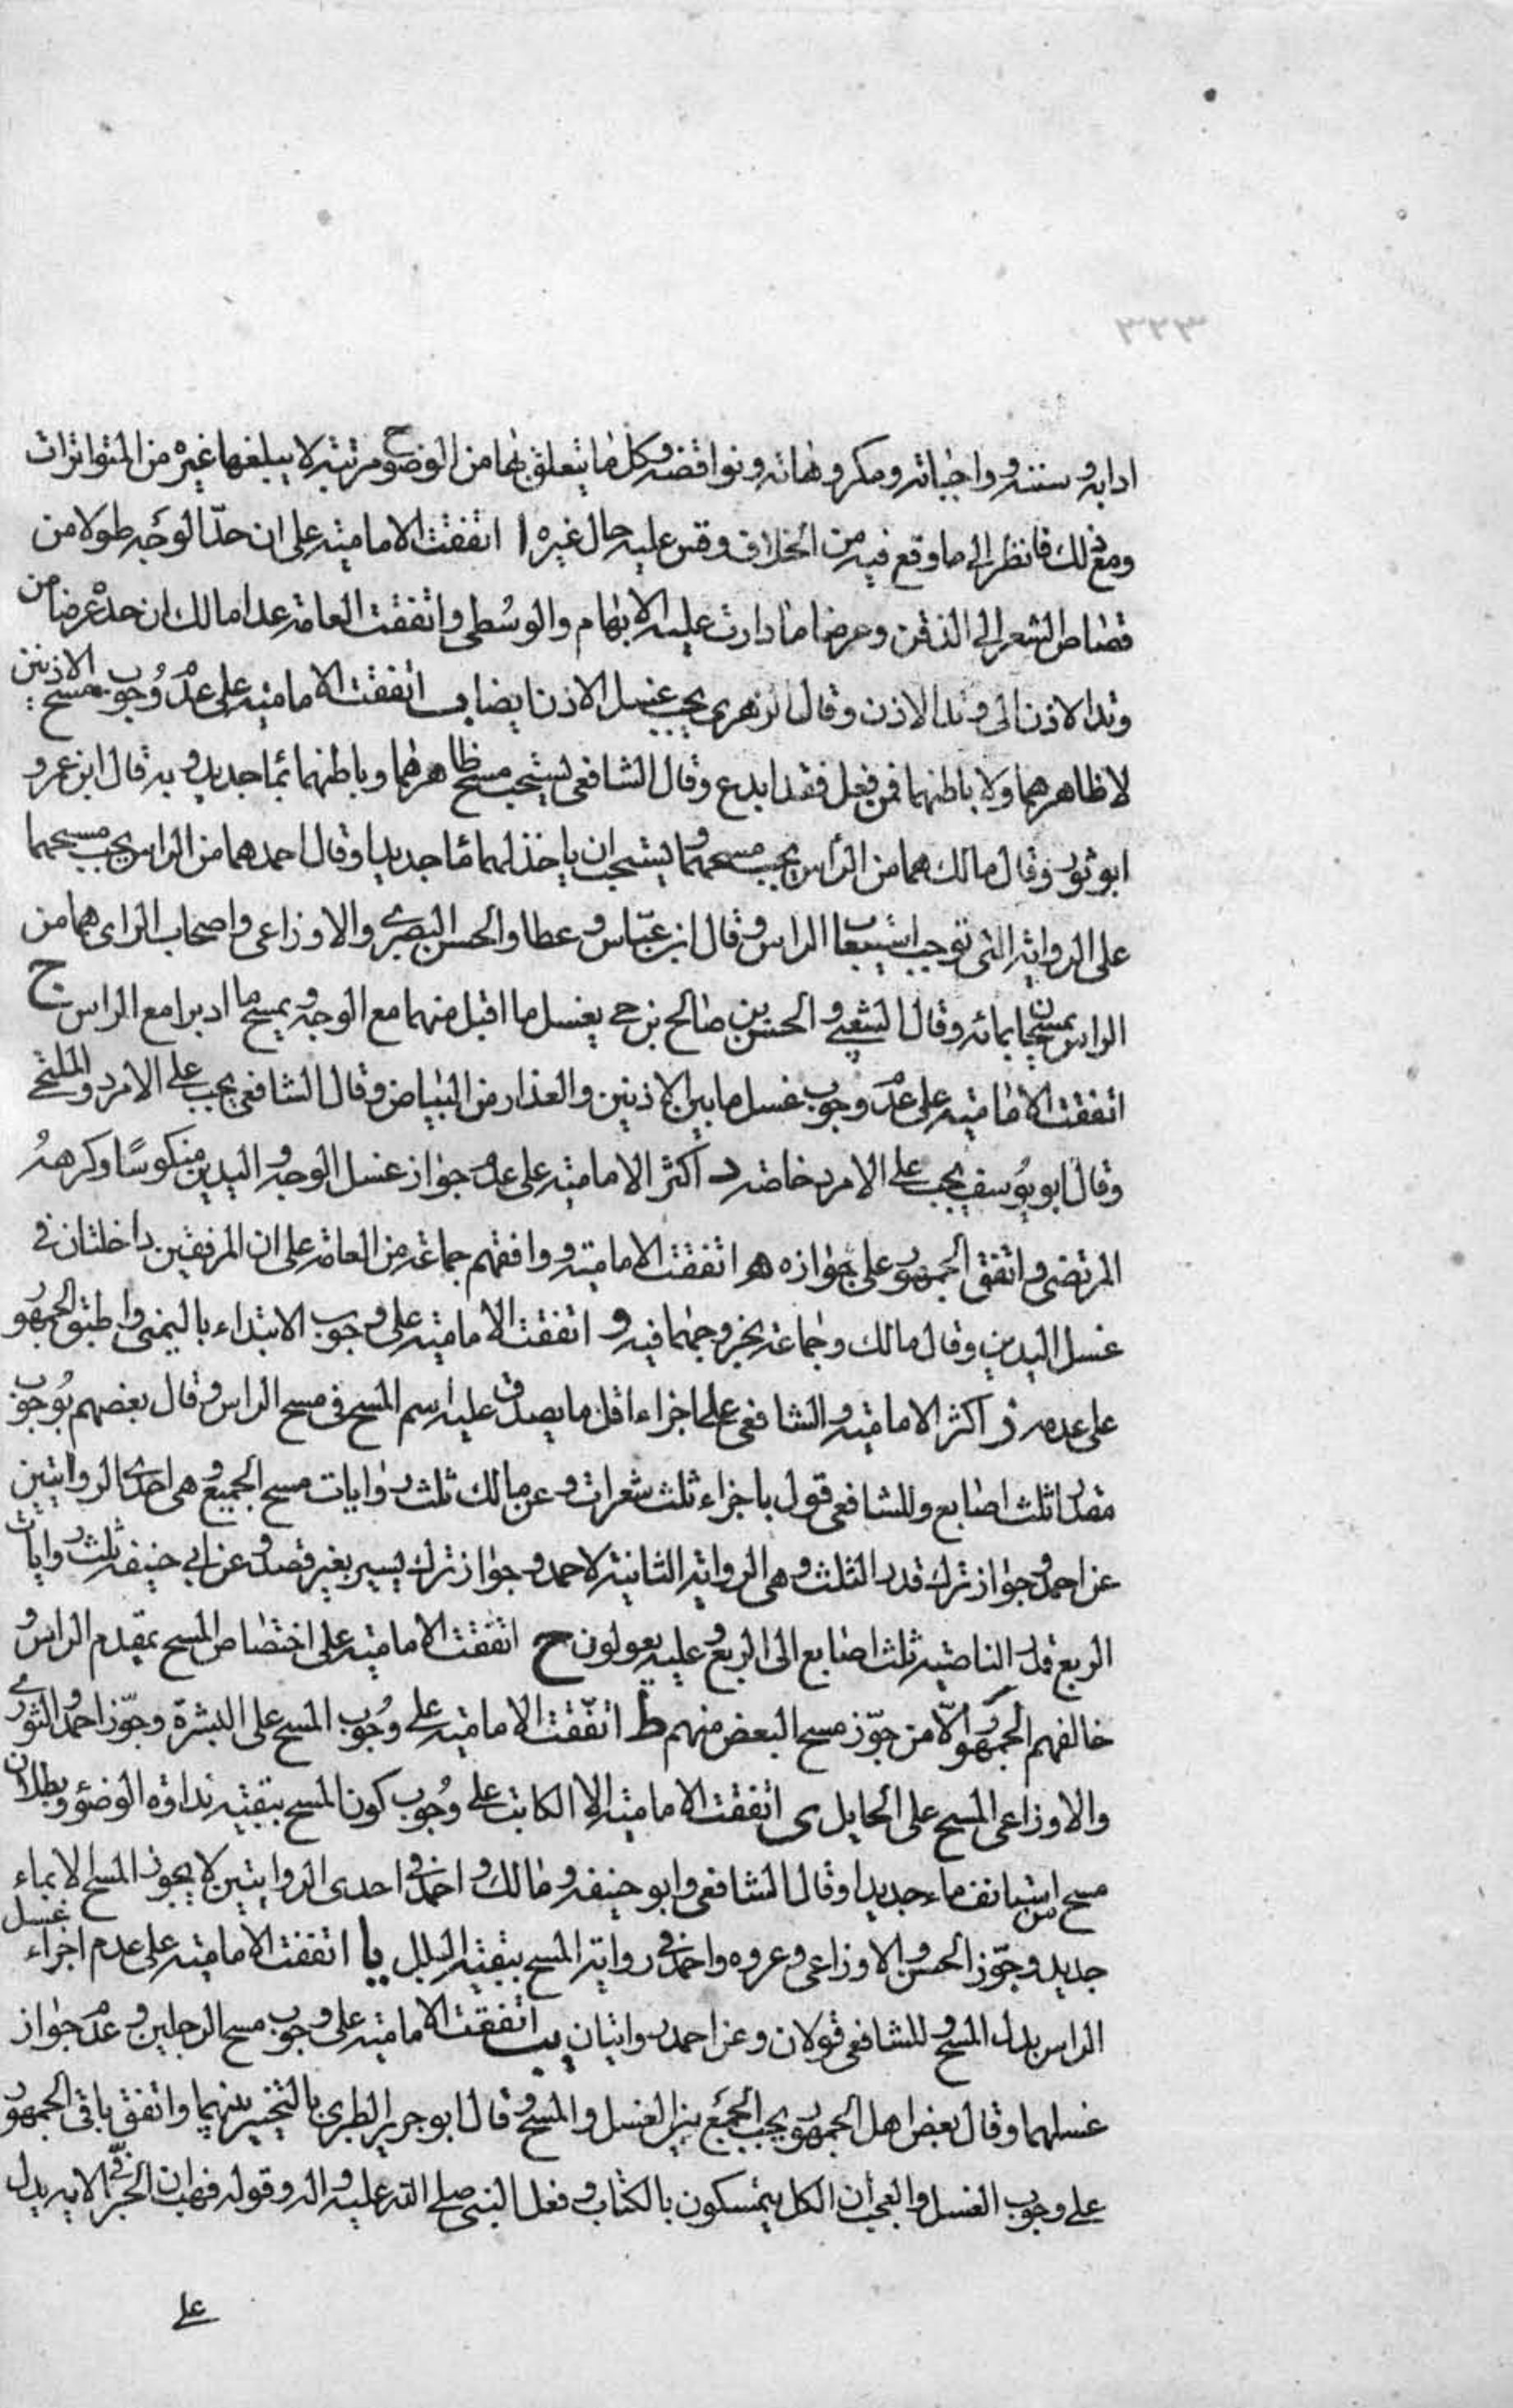 ٣٢٣
ادابه وسننه وواجباته ومكروهاته ونواقضه وكل ما يتعلق بها من الوضوح مرتبة لا يبلغها غيره من المتواترات
ومع ذلك فانظر الى ما وقع فيه من الخلاف وقس عليه حال غيره ا اتفقت الامامية على ان حدّ الوجه طولا من
قصاص الشعر الى الذقن وعرضا ما دارت عليه الابهام والوسُطى واتفقت العامة عدا مالك ان حده عرضا من
وتد الاذن الى وتد الاذن وقال الزهرى يجب غسل الاذن ايضا ب اتفقت الامامية على عدم وُجوب مسح الاذنين
لا ظاهرهما ولا باطنهما فمن فعل فقد ابدع وقال الشافعى يستحب مسح ظاهرهما وباطنهما بما جديد وبه قال ابن عمر و
ابو ثور وقال مالك هما من الرأس يجب مسحهما ويستحب ان ياخذ لهما ماء جديدا وقال احمد هما من الراس يجب مسحهما
على الرواية التى توجب استيعاب الراس وقال ابن عبّاس وعطا والحسن البصرى والاوزاعى واصحاب الراى هما من
الراس يمسحان بمائه وقال الشعبى والحسن بن صالح بن حى يغسل ما اقبل منهما مع الوجه ويمسح ما ادبرا مع الراس ج
اتفقت الامامية على عدم وجوب غسل ما بين الاذنين والعذار من البياض وقال الشافعى يجب على الامرد والملتحى
وقال ابو يوُسف يجب على الامرد خاصة د اكثر الامامية على عدم جواز غسل الوجه واليدين منكوسًا وكرههُ
المرتضى واتفق الجمهور على جوازه هـ اتفقت الامامية ووافقهم جماعة من العامة على ان المرفقين داخلتان فى
غسل اليدين وقال مالك وجماعة بخروجهما فيه و اتفقت الامامية على وجوب الابتداء باليمنى واطبق الجمهور
على عدمه ز اكثر الامامية والشافعى على اجزاء اقل ما يصدق عليه اسم المسح فى مسح الراس وقال بعضهم بوُجوب
مقدار ثلث اصابع وللشافعى قول باجزاء ثلث شعرات وعن مالك ثلث روايات مسح الجميع وهى احدى الروايتين
عن احمد وجواز ترك قدر الثلث وهى الرواية الثانية لاحمد وجواز ترك يسير بغير قصد وعن ابى حنيفه ثلث روايات
الربع قدر الناصية ثلث اصابع الى الربع وعليه يعولون ح اتفقت الامامية على اختصاص المسح بمقدم الراس و
خالفهم الجمهور الّا من جوّز مسح البعض منهم ط اتفقت الامامية على وُجُوب المسح على البشرة وجوّز احمد والثورى
والاوزاعى المسح على الحايل ى اتفقت الامامية الا الكاتب على وُجُوب كون المسح ببقية نداوة الوضوء وبطلان
مسح من استيانف ماء جديدا وقال الشافعى وابو حنيفه ومالك واحمد فى احدى الروايتين لا يجوز المسح الا بماء
جديد وجوّز الحسن والاوزاعى وعروه واحمد فى رواية المسح ببقية البلل يا اتفقت الامامية على عدم اجزاء غسل
الراس بدل المسح وللشافعى قولان وعن احمد روايتان يب اتفقت الامامية على وجوب مسح الرجلين وعدم جواز
غسلهما وقال بعض اهل الجمهور يجب الجمع بين الغسل والمسح وقال ابو جرير الطبرى بالتخيير بينهما واتفق باقى الجمهور
على وجوب الغسل والعجب ان الكل يتمسكون بالكتاب وفعل النبى صلى الله عليه واله وقوله فهب ان الجر فى الايه يدل
على